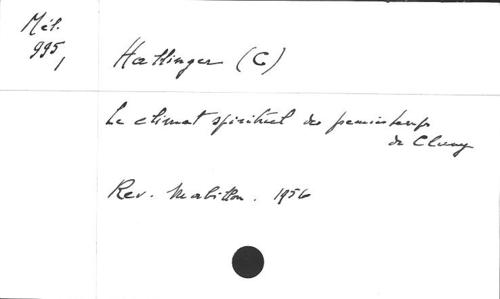 Mél.
995
1
Hallinger (C)
Le climat spirituel des premiers temps
de Cluny
Rev. Mabillon. 1956